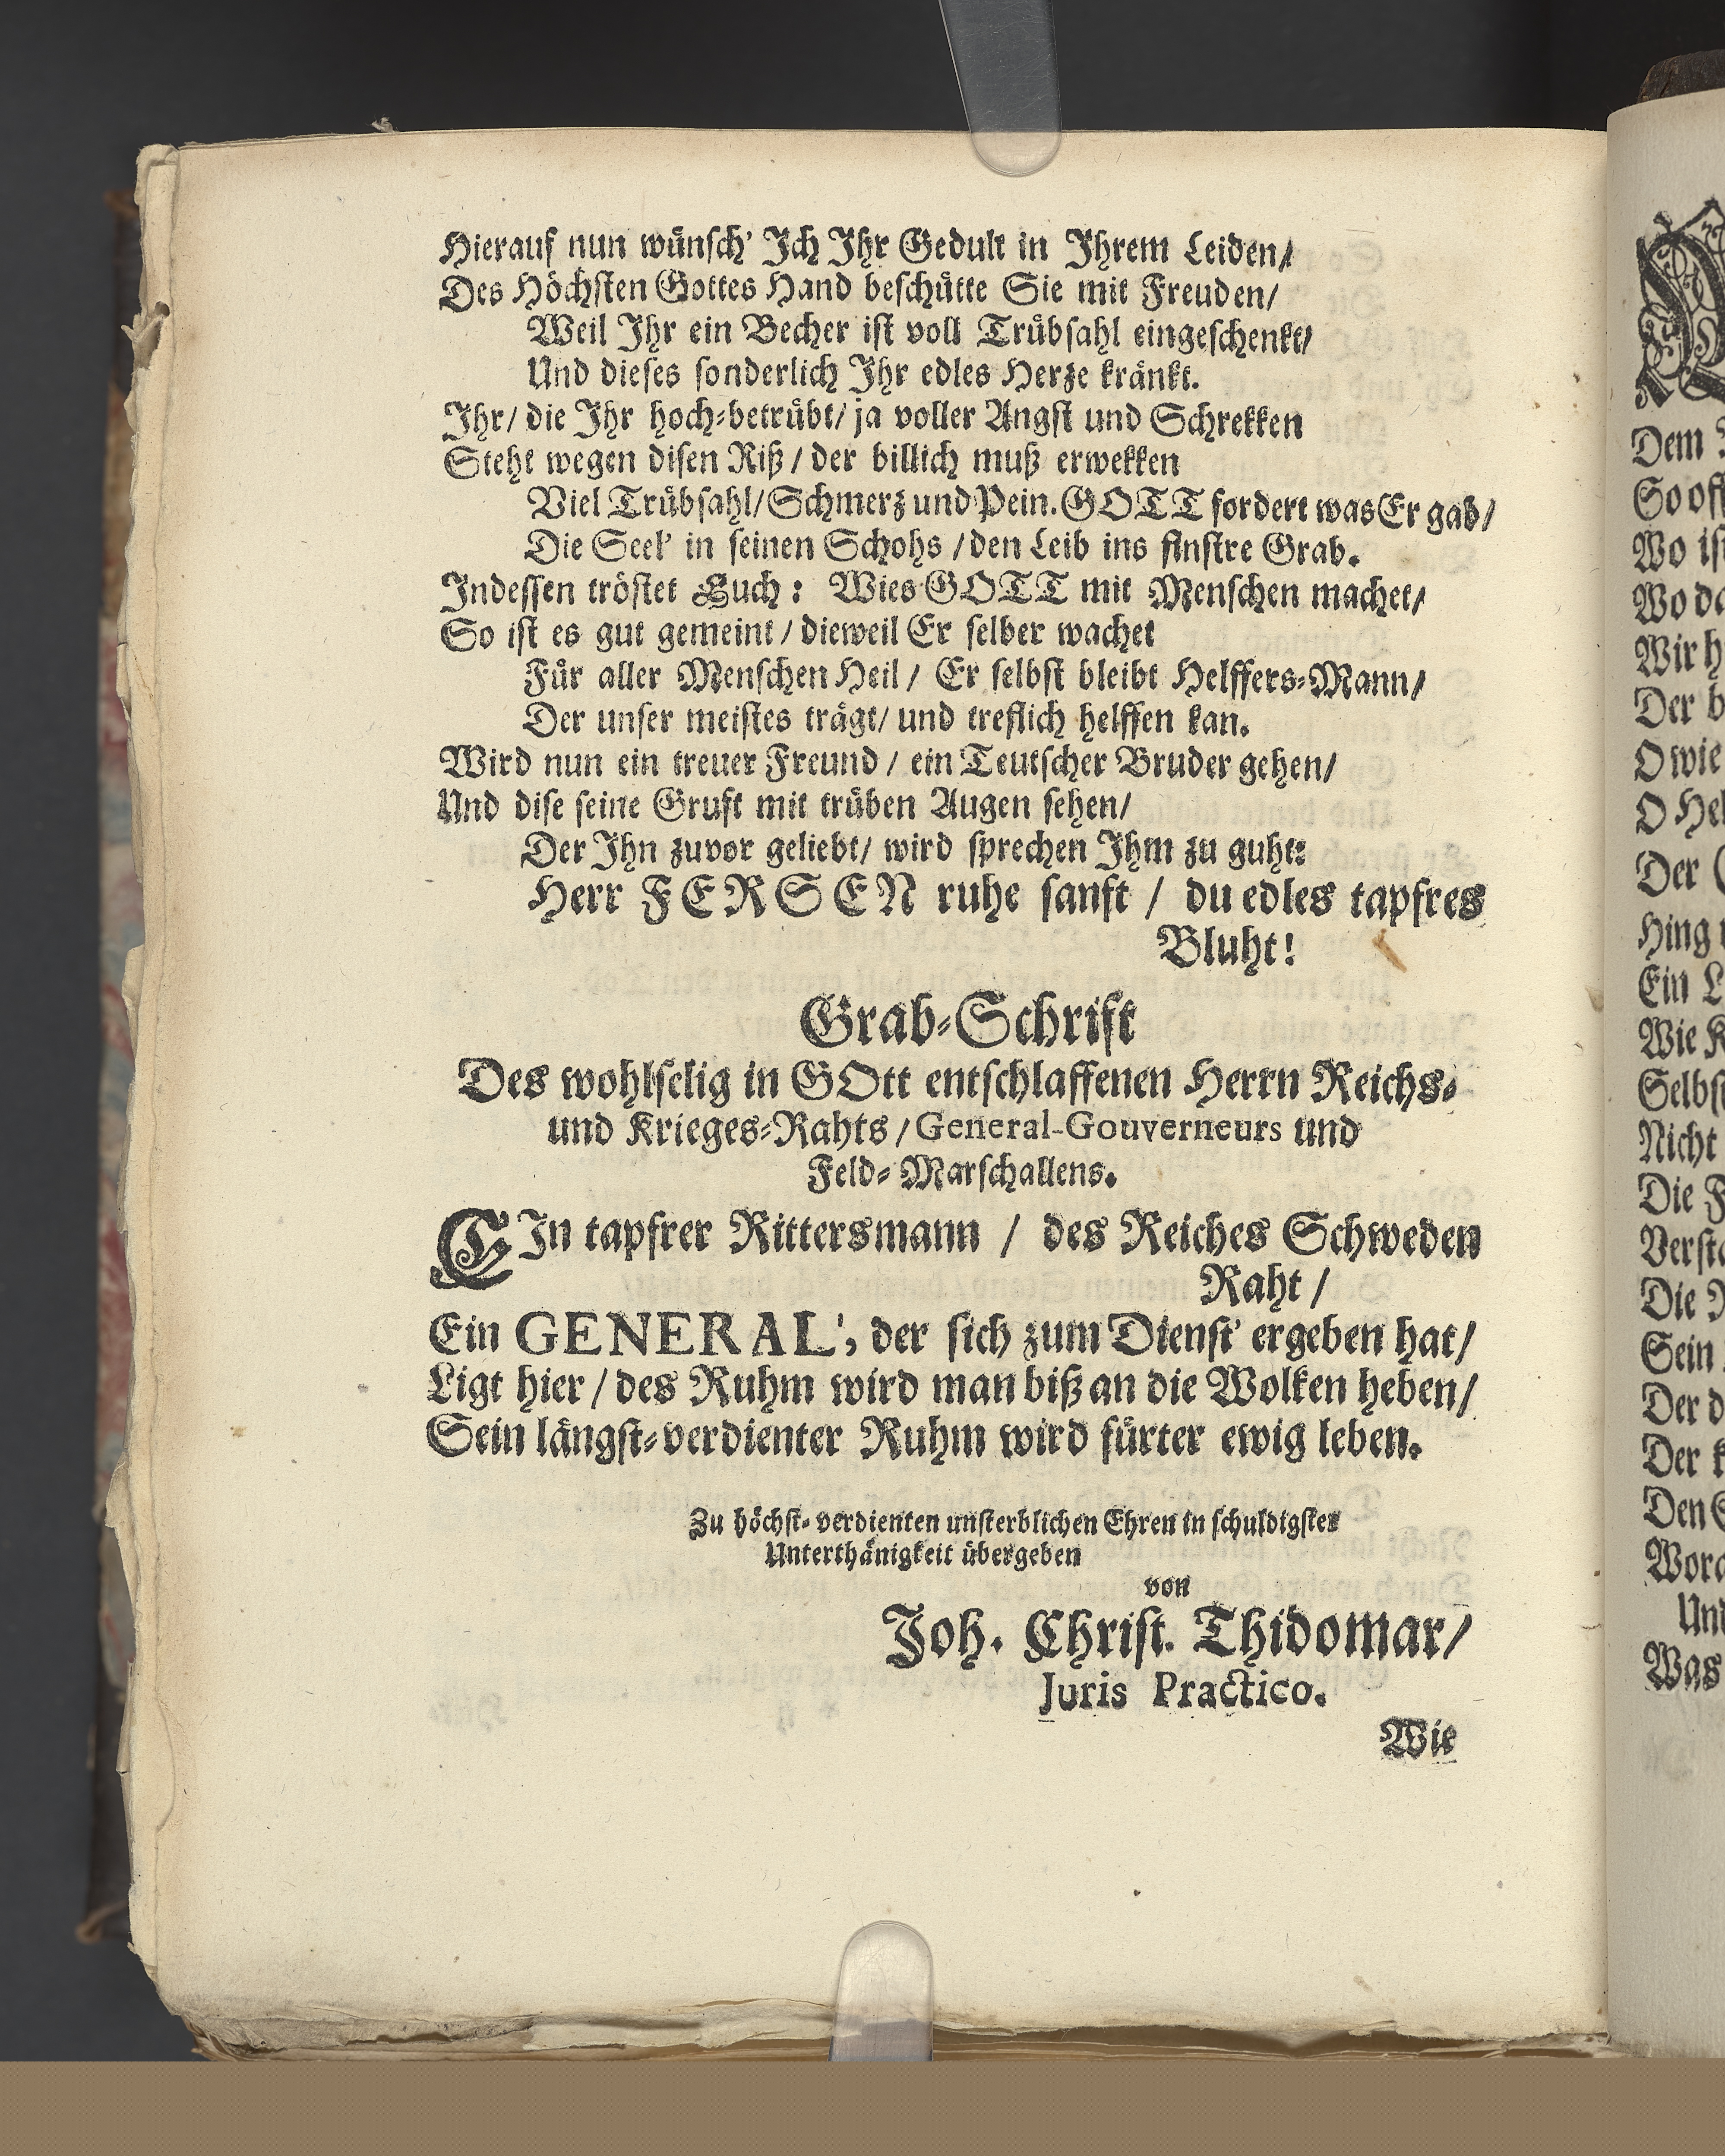 Hierauf nun wünsch' Ich Ihr Gedult in Ihrem Leiden/
Des Höchsten Gottes Hand beschütte Sie mit Freuden/
Weil Ihr ein Becher ist voll Trübsahl eingeschenkt/
Und dieses sonderlich Ihr edles Herze kränkt.
Ihr/ die Ihr hoch-betrübt/ ja voller Angst und Schrekken
Steht wegen disen Riß / der billich muß erwekken
Viel Trübsahl/ Schmerz und Pein. GOTT fordert was Er gab/
Die Seel' in seinen Schohs / den Leib ins finstre Grab.
Indessen tröstet Euch: Wies GOTT mit Menschen machet/
So ist es gut gemeint / dieweil Er selber wachet
Für aller Menschen Heil / Er selbst bleibt Helffers-Mann/
Der unser meistes trägt/ und treflich helffen kan.
Wird nun ein treuer Freund / ein Teutscher Bruder gehen/
Und dise seine Gruft mit trüben Augen sehen/
Der Ihn zuvor geliebt/ wird sprechen Ihm zu guht:
Herr FERSEN ruhe sanft / du edles tapfres
Bluht!
Grab-Schrift
Des wohlselig in GOtt entschlaffenen Herrn Reichs-
und Krieges-Rahts / General-Gouverneurs und
Feld-Marschallens.
EIn tapfrer Rittersmann / des Reiches Schweden
Raht /
Ein GENERAL', der sich zum Dienst' ergeben hat/
Ligt hier / des Ruhm wird man biß an die Wolken heben/
Sein längst-verdienter Ruhm wird fürter ewig leben.
Zu höchst-verdienten unsterblichen Ehren in schuldigster
Unterthänigkeit übergeben
von
Joh. Christ. Thidomar/
Juris Practico.
Wie
Dem
So oft
Wo ist
Wo da
Wir h
Der b
O wie
O Hel
Der
Hing
Ein L
Wie K
Selbst
Nicht
Die F
Versta
Die
Sein
Der d
Der k
Den S
Wora
Und
Was